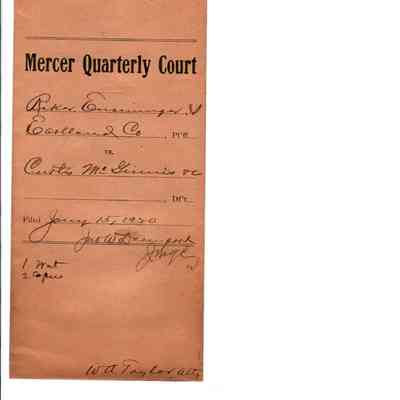 Mercer Quarterly Court
Riker Ensminger &
Eastland Co , Ptff.
vs.
Curtis McGinnis &c
, Dft.
Filed Jany 15, 1920
Jno W
Judge
1 Wat
2 Copies
W A Taylor Atty